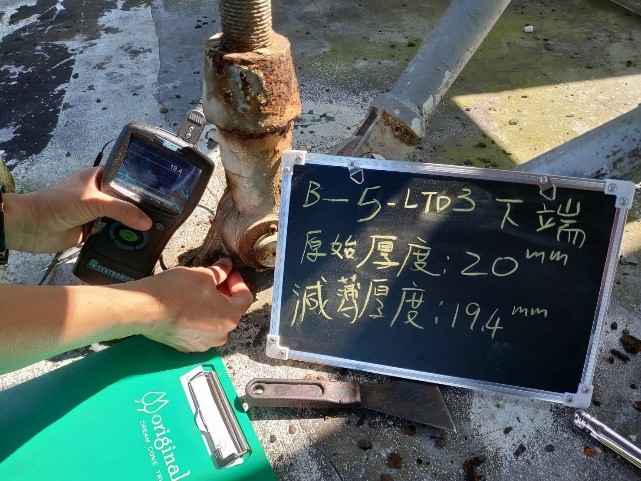 B-5-LTD3 下端
原始厚度:20mm
減薄厚度:19.4mm
19.4
original
DREAM COME TRUE